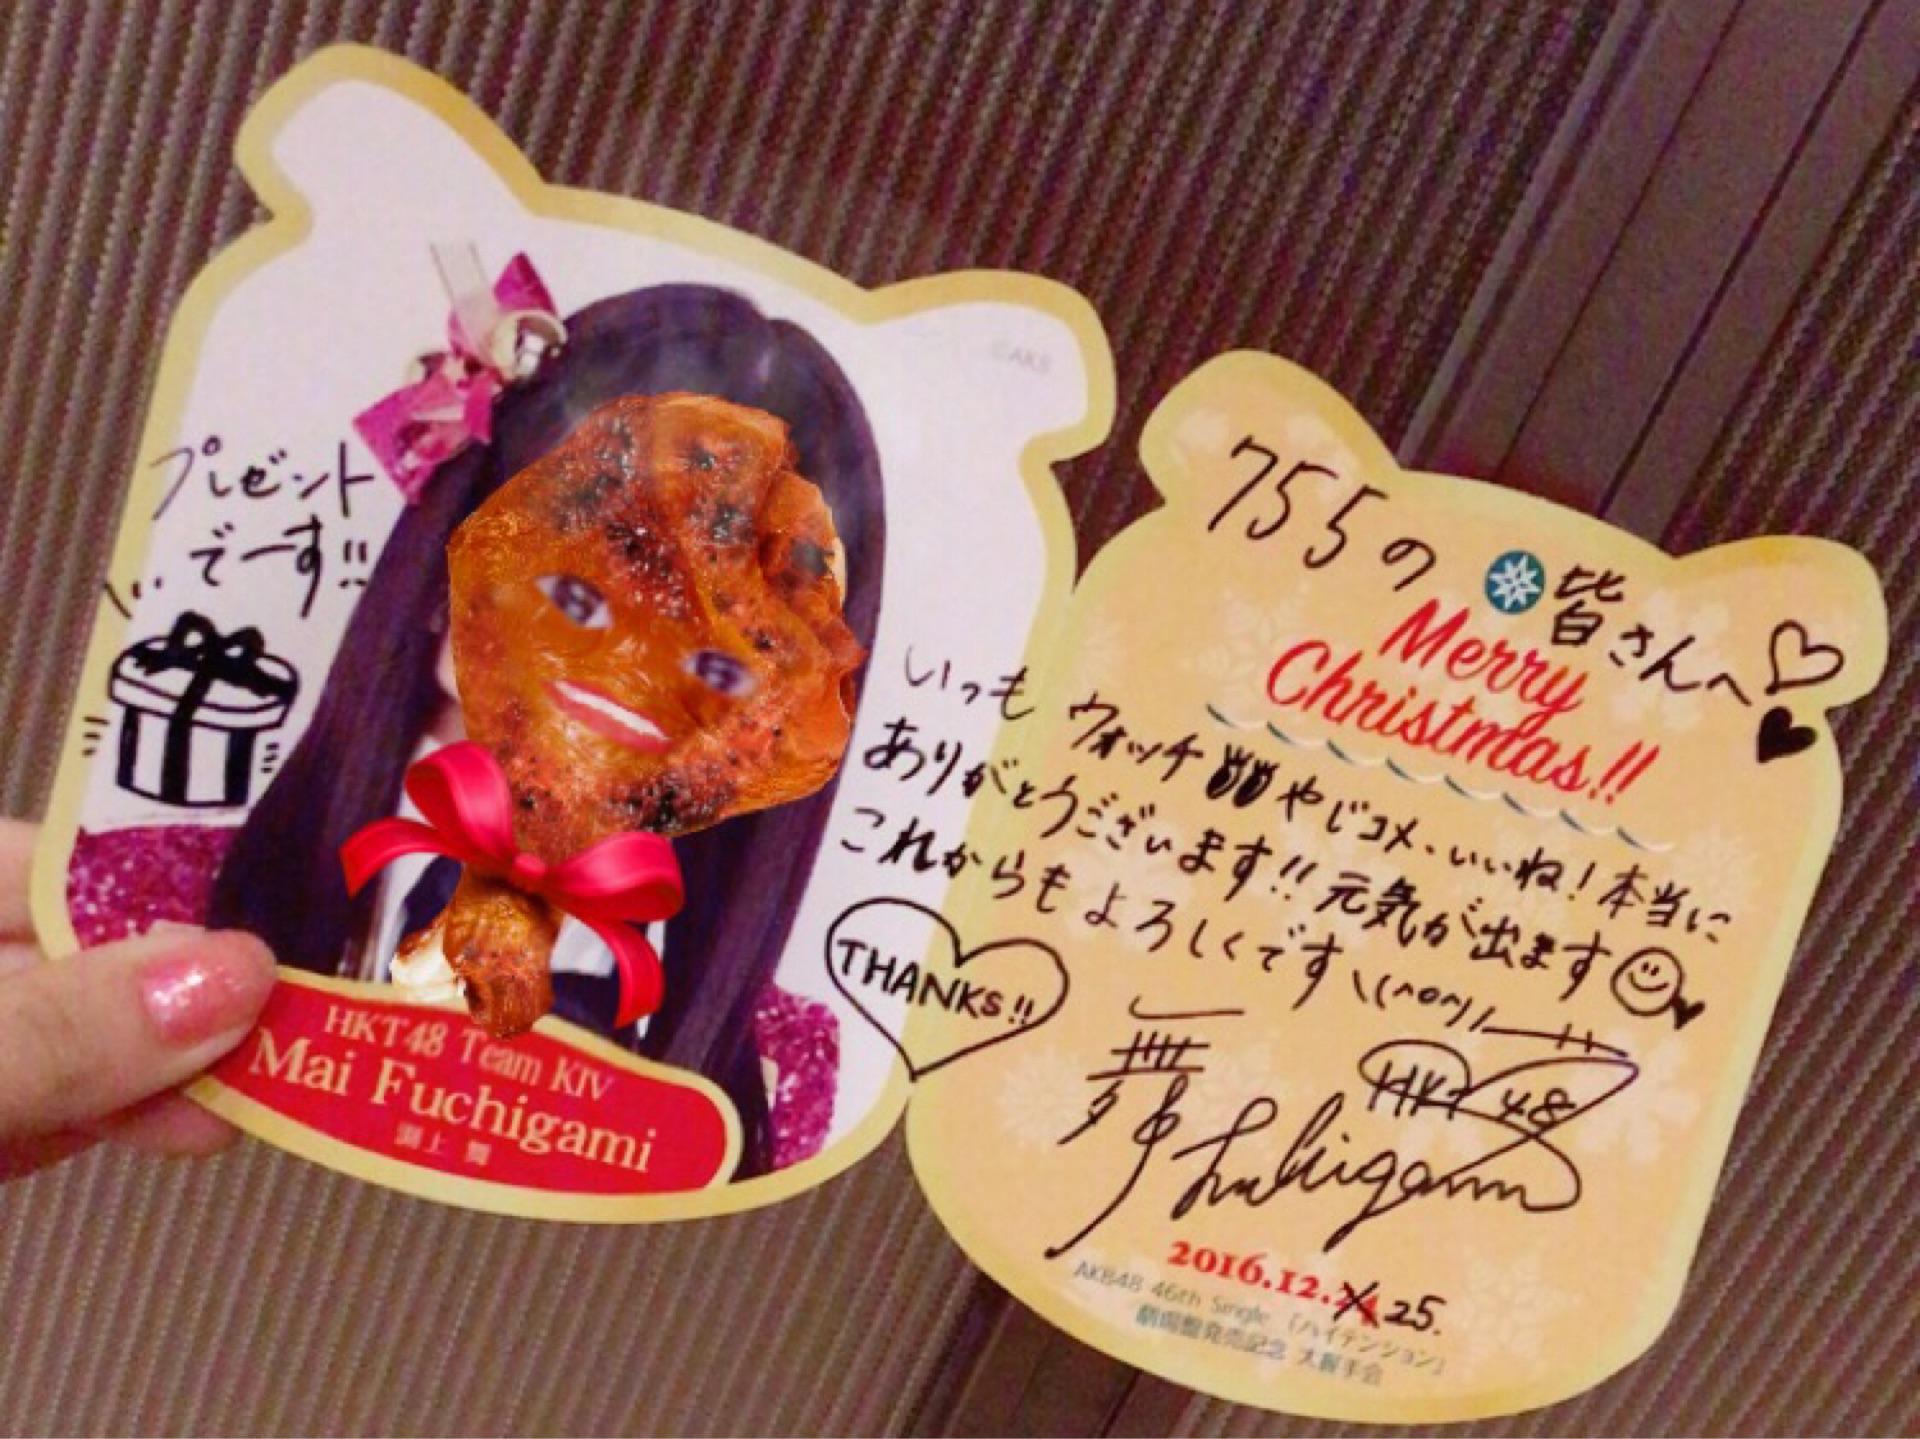 ©AKS
プレゼント
でーす!!
HKT48 Team KIV
Mai Fuchigami
渕上 舞
755の 皆さんへ
Merry
Christmas!!
いつも ウォッチやじコメ、いいね!本当に
ありがとうございます!!元気が出ます
これからもよろしくです\(^o^)/
THANKS!!
舞 Fuchigami
HKT48
2016.12.24 25.
AKB48 46th Single 「ハイテンション」
劇場盤発売記念 大握手会